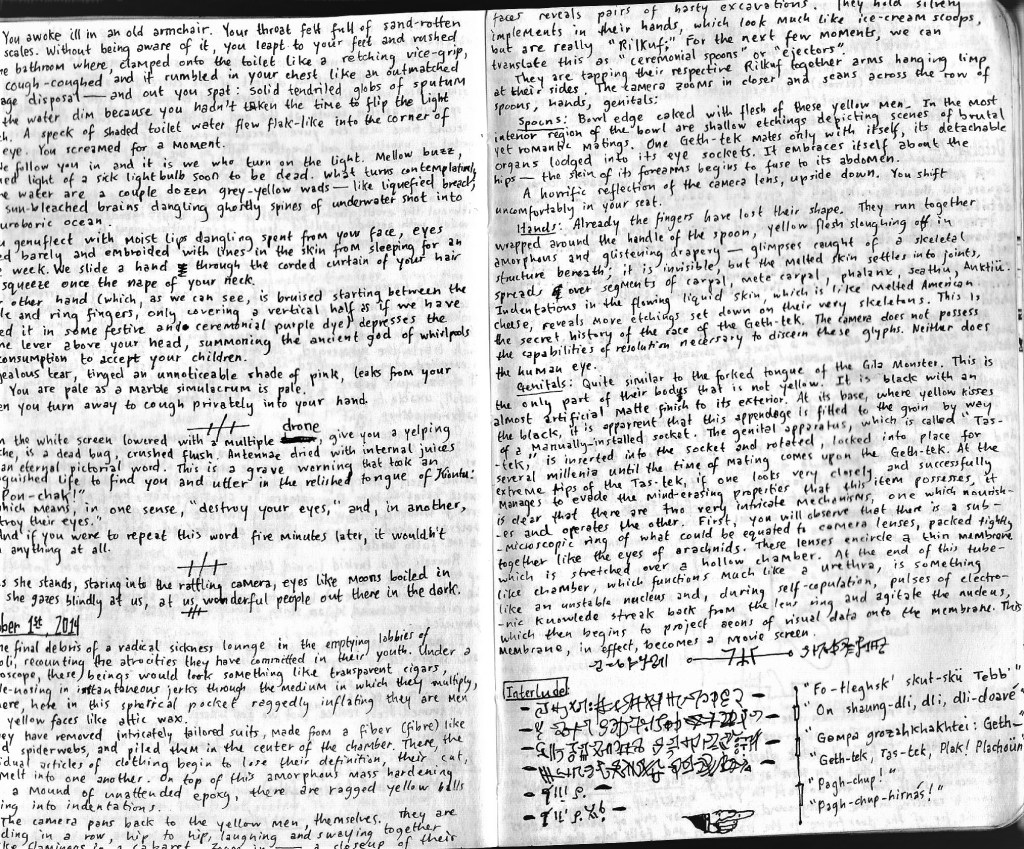 You awoke ill in an old armchair. Your throat felt full of sand-rotten
scales. Without being aware of it, you leapt to your feet and rushed
bathroom where, clamped onto the toilet like a retching vice-grip,
cough-coughed and it rumbled in your chest like an outmatched
disposal — and out you spat: Solid tendriled globs of sputum
the water dim because you hadn't taken the time to flip the light
A speck of shaded toilet water flew flak-like into the corner of
eye. You screamed for a moment.
follow you in and it is we who turn on the light. Mellow buzz,
light of a sick lightbulb soon to be dead. What turns contemplatively
water are a couple dozen grey-yellow wads — like liquefied bread,
sun-bleached brains dangling ghostly spines of underwater snot into
uroboric ocean.
genuflect with moist lips dangling spent from your face, eyes
barely and embroided with lines in the skin from sleeping for an
week. We slide a hand through the corded curtain of your hair
squeeze once the nape of your neck.
other hand (which, as we can see, is bruised starting between the
and ring fingers, only covering a vertical half as if we have
it in some festive and ceremonial purple dye) depresses the
lever above your head, summoning the ancient god of whirlpools
consumption to accept your children.
tear, tinged an unnoticeable shade of pink, leaks from your
You are pale as a marble simulacrum is pale.
you turn away to cough privately into your hand.
the white screen lowered with a multiple drone, give you a yelping
is a dead bug, crushed flush. Antennae dried with internal juices
an eternal pictorial word. This is a grave warning that took an
life to find you and utter in the relished tongue of
Pon-chak!"
which means, in one sense, "destroy your eyes," and, in another,
their eyes."
And if you were to repeat this word five minutes later, it wouldn't
anything at all.
she stands, staring into the rattling camera, eyes like moons boiled in
she gazes blindly at us, at us, wonderful people out there in the dark.
1st, 2014
final debris of a radical sickness lounge in the emptying lobbies of
recounting the atrocities they have committed in their youth. Under a
these beings would look something like transparent cigars,
-nosing in instantaneous jerks through the medium in which they multiply,
here, here in this spherical pocket raggedly inflating they are men
yellow faces like attic wax.
have removed intricately tailored suits, made from a fiber (fibre) like
spiderwebs, and piled them in the center of the chamber. There, the
articles of clothing begin to lose their definition, their cut,
melt into one another. On top of this amorphous mass hardening
a mound of unattended epoxy, there are ragged yellow balls
into indentations.
The camera pans back to the yellow men, themselves. They are
in a row, hip to hip, laughing and swaying together
flamingos in a cabaret. Zoom in — a closeup of their
faces reveals pairs of hasty excavations. They hold silvery
implements in their hands, which look much like ice-cream scoops,
but are really "Rilkuf;" For the next few moments, we can
translate this as "ceremonial spoons" or "ejectors".
They are tapping their respective Rilkuf together arms hanging limp
at their sides. The camera zooms in closer and scans across the row of
spoons, hands, genitals:
Spoons: Bowl edge caked with flesh of these yellow men. In the most
interior region of the bowl are shallow etchings depicting scenes of brutal
yet romantic matings. One Geth-tek mates only with itself, its detachable
organs lodged into its eye sockets. It embraces itself about the
hips — the skin of its forearms begins to fuse to its abdomen.
A horrific reflection of the camera lens, upside down. You shift
uncomfortably in your seat.
Hands: Already the fingers have lost their shape. They run together
wrapped around the handle of the spoon, yellow flesh sloughing off in
amorphous and glistening drapery — glimpses caught of a skeletal
structure beneath; it is invisible, but the melted skin settles into joints,
spreads over segments of carpal, meta carpal, phalanx, seathu, Anktiü.
Indentations in the flowing liquid skin, which is like melted American
cheese, reveals more etchings set down on their very skeletons. This is
the secret history of the race of the Geth-tek. The camera does not possess
the capabilities of resolution necessary to discern these glyphs. Neither does
the human eye.
Genitals: Quite similar to the forked tongue of the Gila Monster. This is
the only part of their bodys that is not yellow. It is black with an
almost artificial matte finish to its exterior. At its base, where yellow kisses
the black, it is apparent that this appendage is fitted to the groin by way
of a manually-installed socket. The genital apparatus, which is called "Tas-
-tek," is inserted into the socket and rotated, locked into place for
several millenia until the time of mating comes upon the Geth-tek. At the
extreme tips of the Tas-tek, if one looks very closely and successfully
manages to evade the mind-erasing properties that this item possesses, it
is clear that there are two very intricate mechanisms, one which nourish-
-es and operates the other. First, you will observe that there is a sub-
-microscopic ring of what could be equated to camera lenses, packed tightly
together like the eyes of arachnids. These lenses encircle a thin membrane
which is stretched over a hollow chamber. At the end of this tube-
like chamber, which functions much like a urethra, is something
like an unstable nucleus and, during self-copulation, pulses of electro-
-nic knowlede streak back from the lens ring and agitate the nucleus,
which then begins to project aeons of visual data onto the membrane. This
membrane, in effect, becomes a movie screen.
Interlude:
"Fo-tleghsk' skut-skü Tebb'"
"On shaung-dli, dli, dli-doavé"
"Gompa grozahkhakhtei: Geth-"
"Geth-tek, Tas-tek, Plak! Plachoün"
"Pagh-chup!"
"Pagh-chup-hirnás!"